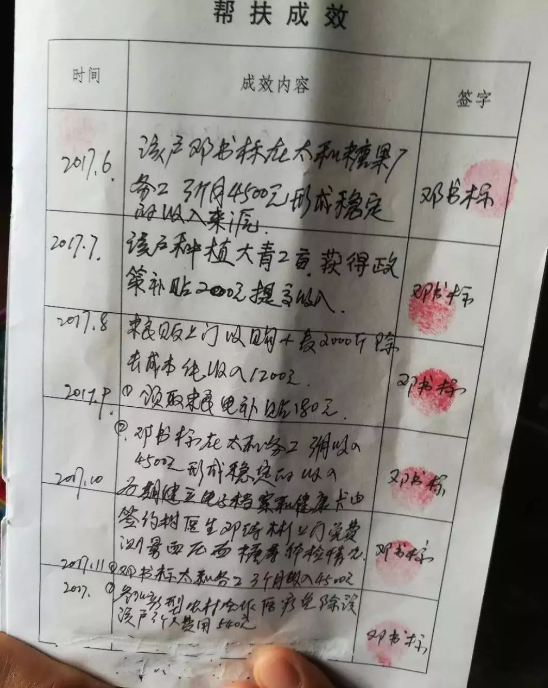 帮扶成效
时间 成效内容 签字
2017.6 该户邓书标在太和糖果厂
务工 3个月4500元形成稳定
的收入来源 邓书标
2017.7 该户种植大青2亩 获得政
策补贴2000元提高收入 邓书标
2017.8 粮贩上门收购小麦2000斤 除
去成本纯收入1200元 邓书标
2017.9 ① 领取粮电补贴180元
② 邓书标在太和务工 3月收入
4500元形成稳定的收入 邓书标
2017.10 建立电子档案和健康卡由
签约村医生邓 上门免费
测量血压血糖等体检情况 邓书标
2017.11 邓书标太和务工3个月收入4500元
2017. 新型农村合作医疗免除该
该户3个人费用540元 邓书标